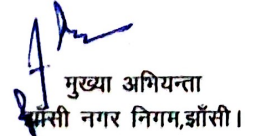 मुख्या अभियन्ता
झाँसी नगर निगम,झाँसी।